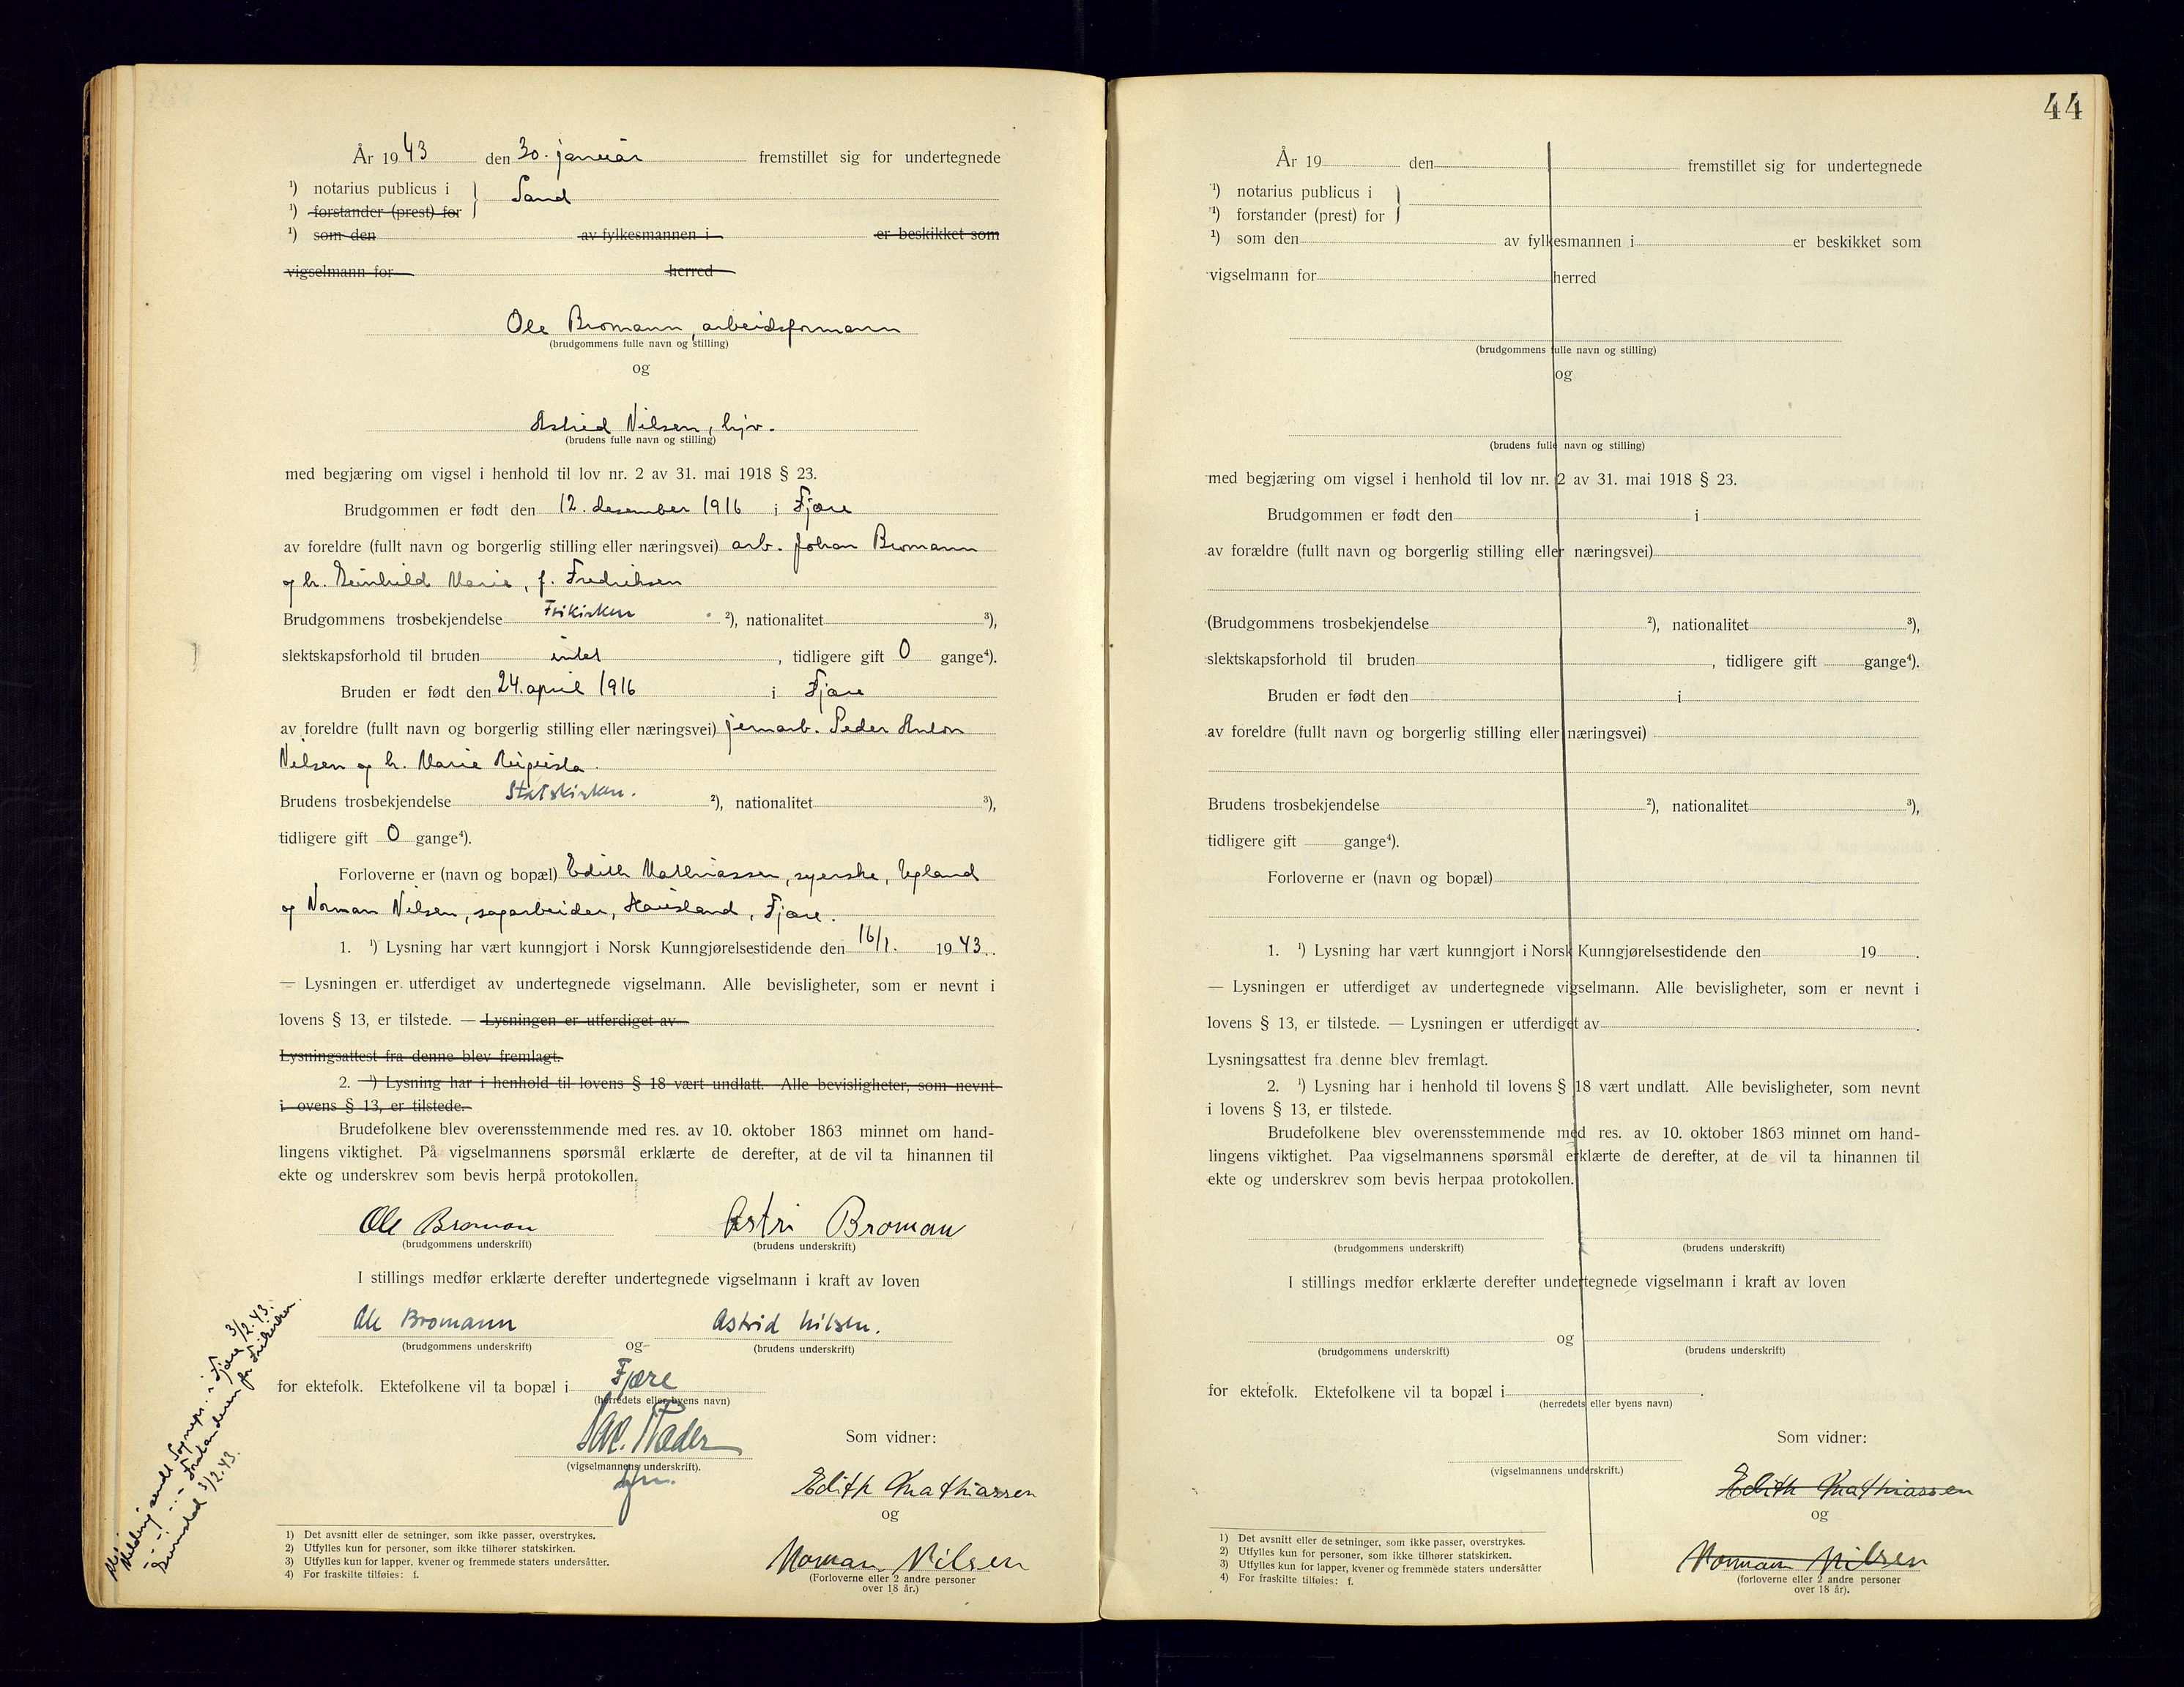 År 1943 den 30. januar fremstillet sig for undertegnede
¹) notarius publicus i } Sand
¹) forstander (prest) for
¹) som den av fylkesmannen i er beskikket som
vigselmann for herred
Ole Bromann, arbeidsformann
(brudgommens fulle navn og stilling)
og
Astrid Nilsen, hjv.
(brudens fulle navn og stilling)
med begjæring om vigsel i henhold til lov nr. 2 av 31. mai 1918 § 23.
Brudgommen er født den 12. desember 1916 i Fjære
av foreldre (fullt navn og borgerlig stilling eller næringsvei) arb. Johan Bromann
og h. Marie, f. Fredriksen
Brudgommens trosbekjendelse Frikirken ²), nationalitet ³),
slektskapsforhold til bruden intet, tidligere gift 0 gange⁴).
Bruden er født den 24. april 1916 i Fjære
av foreldre (fullt navn og borgerlig stilling eller næringsvei) jernarb. Peder Anton
Nilsen og h. Marie Augusta.
Brudens trosbekjendelse Statskirken. ²), nationalitet ³),
tidligere gift 0 gange⁴).
Forloverne er (navn og bopæl) Edith Mathiassen, syerske, Egland
og Norman Nilsen, sagarbeider, Hausland, Fjære.
1. ¹) Lysning har vært kunngjort i Norsk Kunngjørelsestidende den 16/1. 1943.
— Lysningen er utferdiget av undertegnede vigselmann. Alle bevisligheter, som er nevnt i
lovens § 13, er tilstede. — Lysningen er utferdiget av
Lysningsattest fra denne blev fremlagt.
2. ¹) Lysning har i henhold til lovens § 18 vært undlatt. Alle bevisligheter, som nevnt
i ovens § 13, er tilstede.
Brudefolkene blev overensstemmende med res. av 10. oktober 1863 minnet om hand-
lingens viktighet. På vigselmannens spørsmål erklærte de derefter, at de vil ta hinannen til
ekte og underskrev som bevis herpå protokollen.
Ole Broman Astri Broman
(brudgommens underskrift) (brudens underskrift)
I stillings medfør erklærte derefter undertegnede vigselmann i kraft av loven
Ole Bromann Astrid Nilsen.
(brudgommens underskrift) og (brudens underskrift)
for ektefolk. Ektefolkene vil ta bopæl i Fjære
(herredets eller byens navn)
Ræder
(vigselmannens underskrift).
Som vidner:
Edith Mathiassen
og
Norman Nilsen
(Forloverne eller 2 andre personer
over 18 år.)
Melding sendt Sognepr. i Fjære 3/2.43.
- " - - " - Forstanderen for Frikirken.
Grimstad 3/2.43.
1) Det avsnitt eller de setninger, som ikke passer, overstrykes.
2) Utfylles kun for personer, som ikke tilhører statskirken.
3) Utfylles kun for lapper, kvener og fremmede staters undersåtter.
4) For fraskilte tilføies: f.
44
År 19 den fremstillet sig for undertegnede
¹) notarius publicus i }
¹) forstander (prest) for
¹) som den av fylkesmannen i er beskikket som
vigselmann for herred
(brudgommens fulle navn og stilling)
og
(brudens fulle navn og stilling)
med begjæring om vigsel i henhold til lov nr. 2 av 31. mai 1918 § 23.
Brudgommen er født den i
av forældre (fullt navn og borgerlig stilling eller næringsvei)
(Brudgommens trosbekjendelse ²), nationalitet ³),
slektskapsforhold til bruden , tidligere gift gange⁴).
Bruden er født den i
av foreldre (fullt navn og borgerlig stilling eller næringsvei)
Brudens trosbekjendelse ²), nationalitet ³),
tidligere gift gange⁴).
Forloverne er (navn og bopæl)
1. ¹) Lysning har vært kunngjort i Norsk Kunngjørelsestidende den 19 .
— Lysningen er utferdiget av undertegnede vigselmann. Alle bevisligheter, som er nevnt i
lovens § 13, er tilstede. — Lysningen er utferdiget av .
Lysningsattest fra denne blev fremlagt.
2. ¹) Lysning har i henhold til lovens § 18 vært undlatt. Alle bevisligheter, som nevnt
i lovens § 13, er tilstede.
Brudefolkene blev overensstemmende med res. av 10. oktober 1863 minnet om hand-
lingens viktighet. Paa vigselmannens spørsmål erklærte de derefter, at de vil ta hinannen til
ekte og underskrev som bevis herpaa protokollen.
(brudgommens underskrift) (brudens underskrift)
I stillings medfør erklærte derefter undertegnede vigselmann i kraft av loven
og
(brudgommens underskrift) (brudens underskrift)
for ektefolk. Ektefolkene vil ta bopæl i .
(herredets eller byens navn)
Som vidner:
(vigselmannens underskrift.)
Edith Mathiassen
og
Norman Nilsen
(forloverne eller 2 andre personer
over 18 år).
1) Det avsnitt eller de setninger, som ikke passer, overstrykes.
2) Utfylles kun for personer, som ikke tilhører statskirken.
3) Utfylles kun for lapper, kvener og fremmede staters undersåtter
4) For fraskilte tilføies: f.